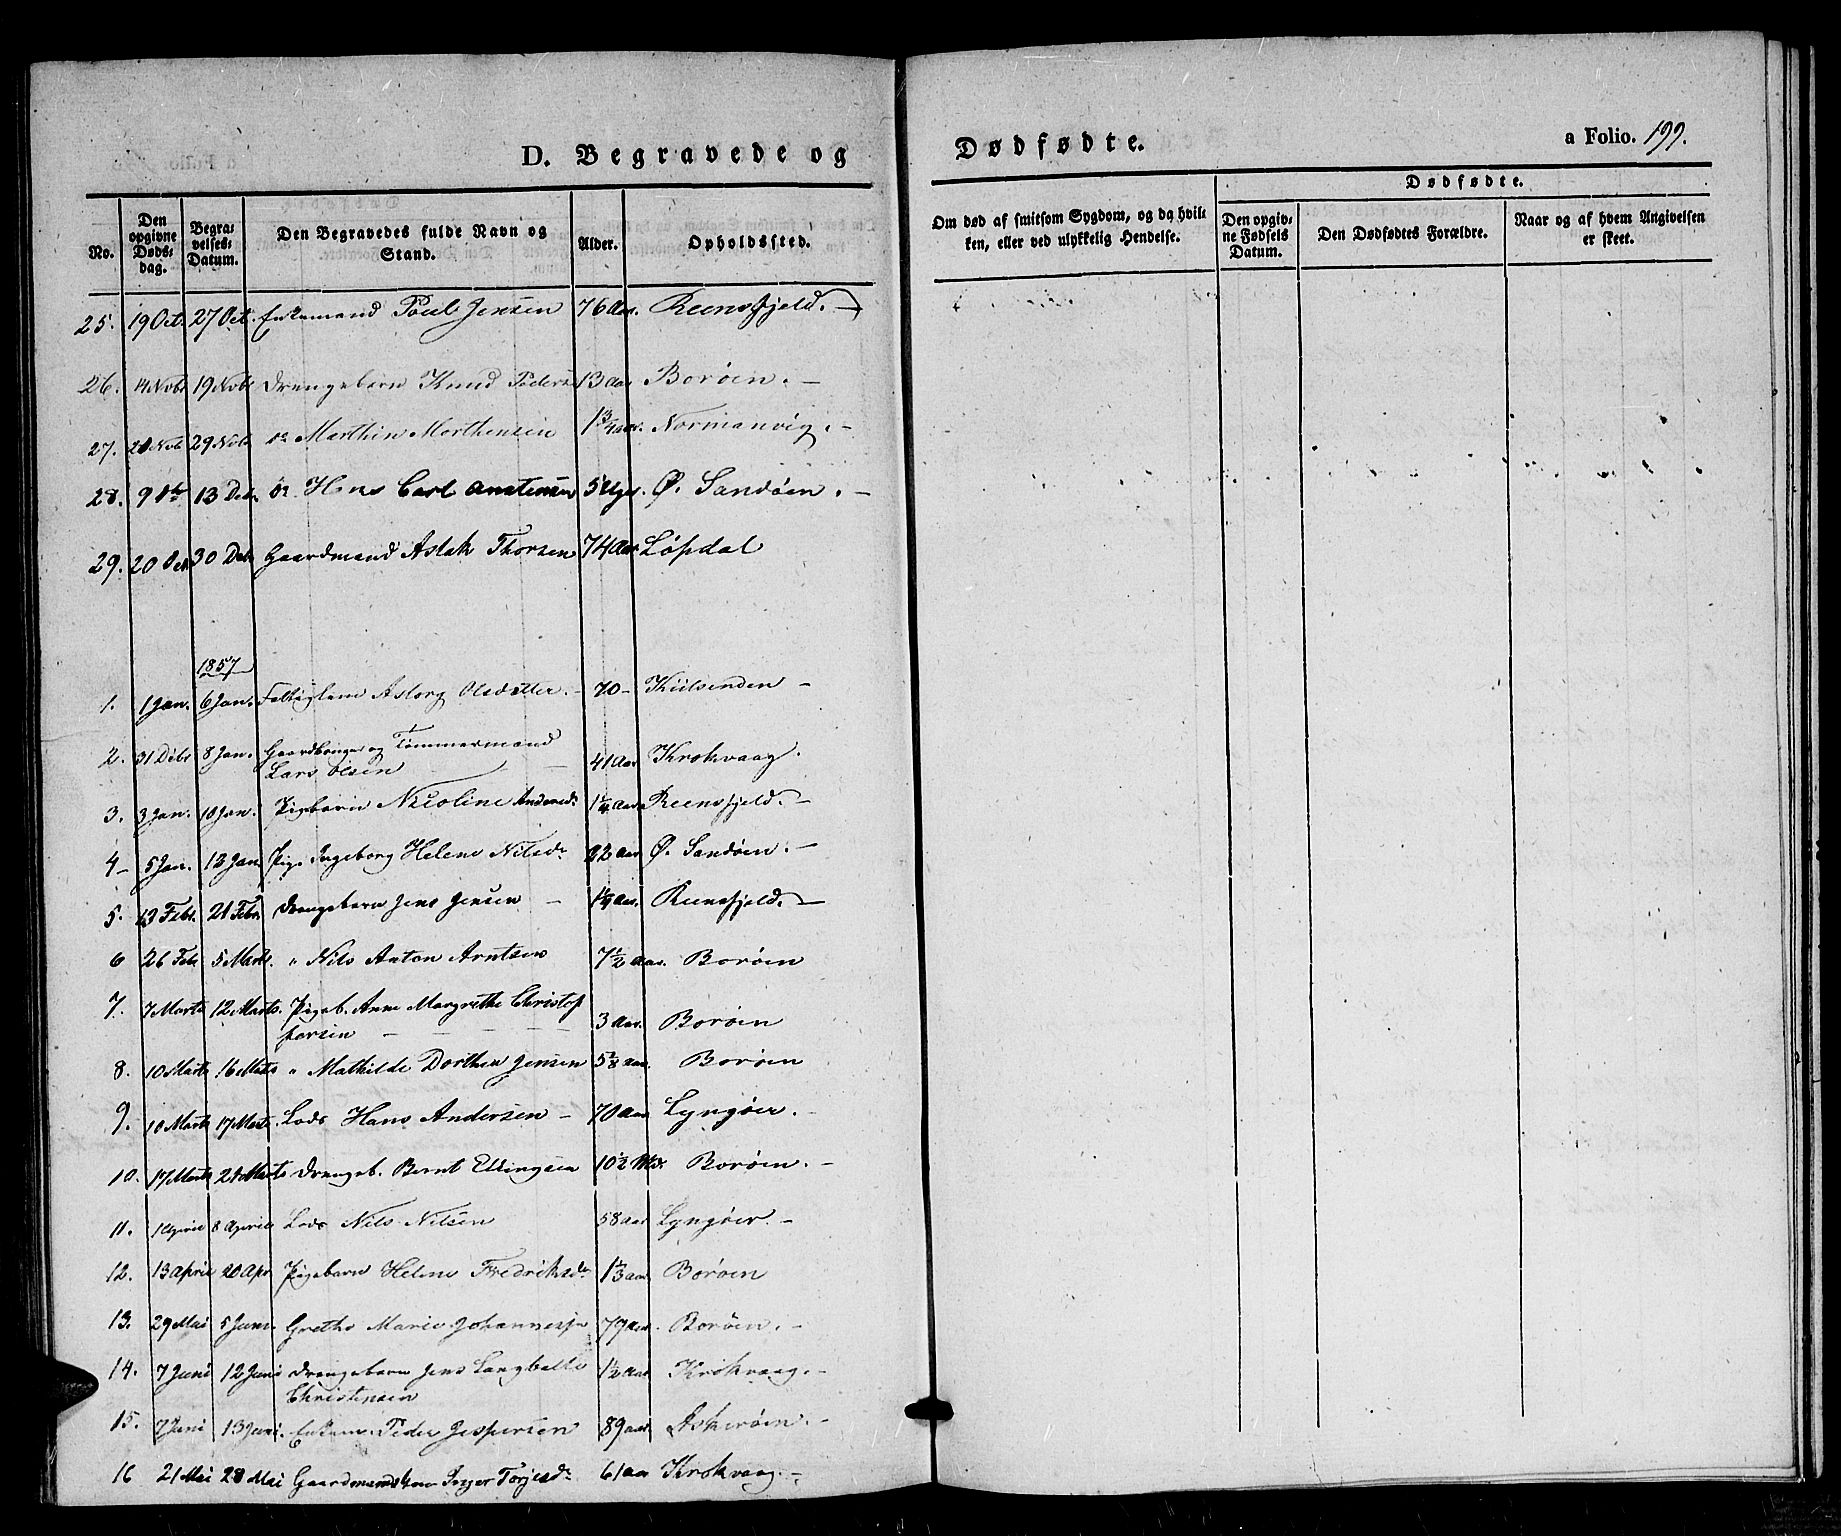 D. Begravede og
Dødfødte.
a Folio. 199.
No. Den opgivne Døds-dag. Begra-velses-Datum. Den Begravedes fulde Navn og Stand. Alder. Opholdssted.
Om død af smitsom Sygdom, og da hvil-ken, eller ved ulykkelig Hendelse.
Dødfødte.
Den opgiv-ne Fødsels Datum. Den Dødfødtes Forældre. Naar og af hvem Angivelsen er skeet.
25. 19 Oct. 27 Oct. Enkemand Poul Jensen 76 Aar. Reensfjeld. –
26. 14 Novbr 19 Novb Drengebarn Knud Peders 13 Aar Borøen. –
27. Novb 29 Novb do Marthin Morthensen 1 3/4 aar. Normanvig. –
28. 9 13 Debr do Hans Carl 5 Uger. Ø. Sandøen. –
29. 20 30 Debr Gaardmand Aslak Thorsen 74 Aar Løpdal
1857
1. 1 Jan. 6 Jan. Aslorg Olsdatter. – 70 – –
2. 31 Debr 8 Jan. og Tømmermand
Lars Olsen – – 41 Aar Krokvaag.
3. 3 Jan. 10 Jan. Pigebarn Nicoline Andersdr 1 1/4 Aar Reensfjeld. –
4 – 5 Jan. 12 Jan Pige Ingeborg Helene Nilsdr 22 aar Ø. Sandøen. –
5. 13 Febr. 21 Febr. Drengebarn Jens Jensen – 1 1/4 Aar. Reensfjeld. –
6 26 Febr 5 Marts. " Nils Anton Arntsen 7 1/2 Aar. Borøen
7. 7 Marts 12 Marts. Pigeb. Anne Margrethe Christof
fersen – – – – 3 Aar. Borøen
8. 10 Marts 16 Marts " Mathilde Dorthea Jensen 5 aar. Borøen
9. 10 Marts 17 Marts. Lods Hans Andersen – 70 Aar Lyngøer. –
10. 17 Marts 24 Marts Drengeb. Bernt Ellingsen 10 1/2 Md. Borøen. –
11. 1 April 8 April Lods Nils Nilsen 58 aar Lyngøer. –
12. 13 April 20 Apr Pigebarn Helene Fredriksdr 1 1/3 aar Borøen
13. 29 Mai 5 Juni. Grethe Marie 79 Aar. Borøen. –
14. 7 Juni 12 Juni Drengebarn Jens Langballe
Christensen 1 1/2 Aar Krokvaag. –
15. 7 Juni 13 Juni. Enkem. Peder Jespersen 89 aar Askerøen. –
16 21 Mai 28 Mai Gaardmandskone Inger Torjesdr 61 aar Krokvaag. –